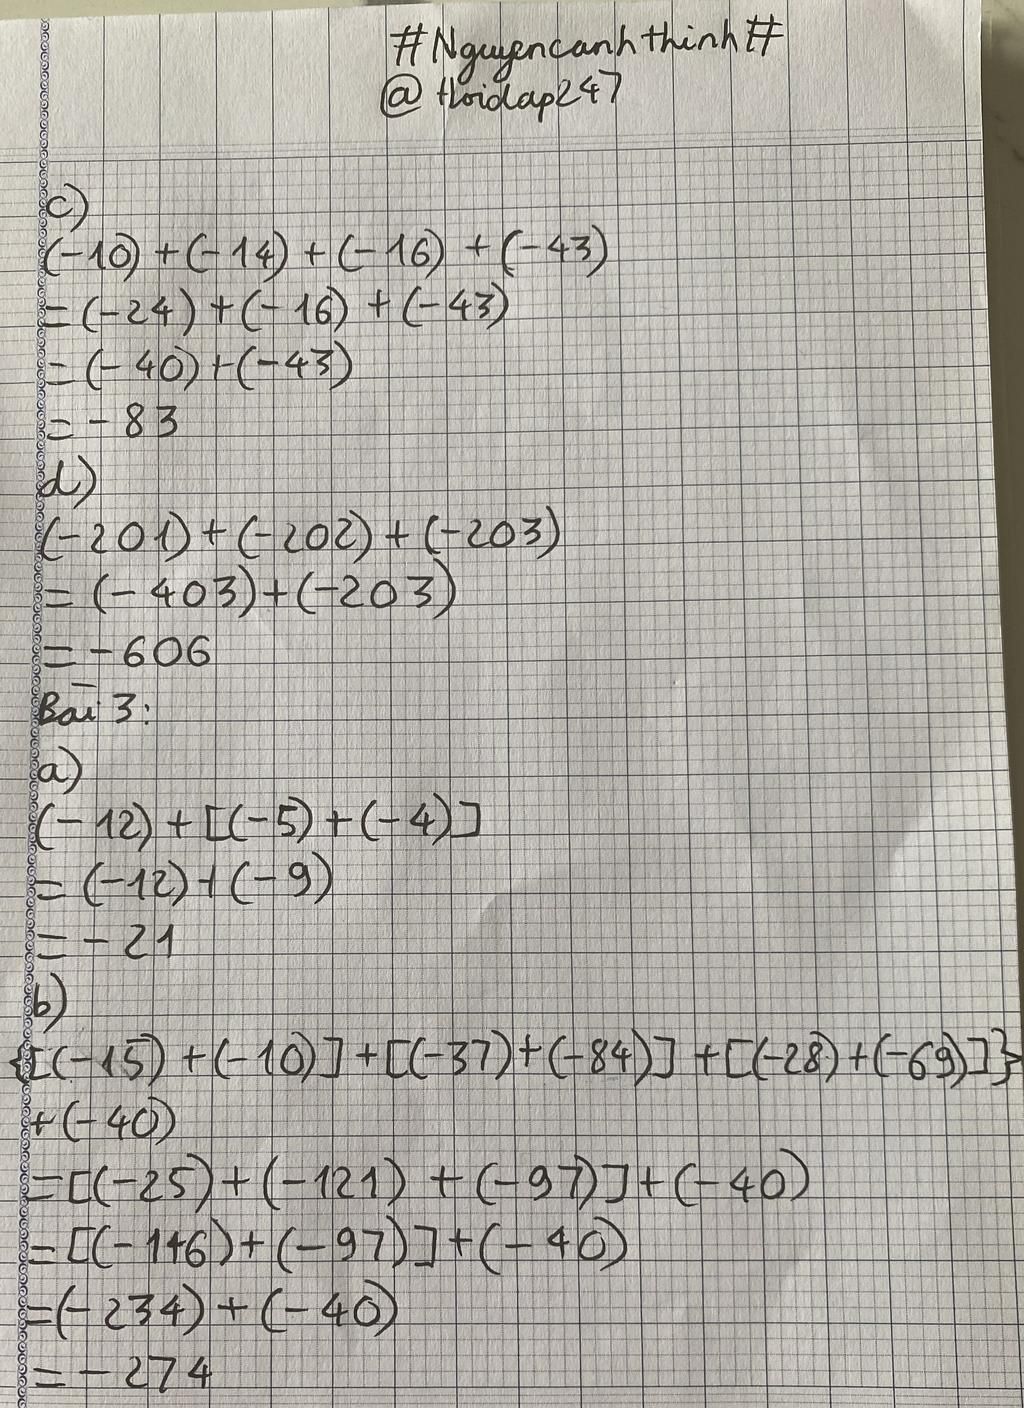 #Nguyencanhthinh#
@hoidap247
c)
(-10)+(-14)+(-16)+(-43)
=(-24)+(-16)+(-43)
=(-40)+(-43)
=-83
d)
(-201)+(-202)+(-203)
=(-403)+(-203)
=-606
Bài 3:
a)
(-12)+[(-5)+(-4)]
=(-12)+(-9)
=-21
b)
{[(-15)+(-10)]+[(-37)+(-84)]+[(-28)+(-69)]}
+(-40)
=[(-25)+(-121)+(-97)]+(-40)
=[(-146)+(-97)]+(-40)
=(-234)+(-40)
=-274